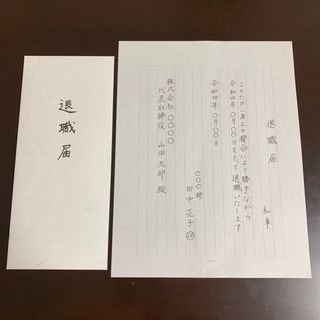 退職届
退職届
私事
このたび一身上の都合により勝手ながら
令和四年〇月〇〇日をもって退職いたします
令和四年〇月〇〇日
〇〇〇部
田中花子㊞
株式会社〇〇〇〇
代表取締役 山田太郎殿